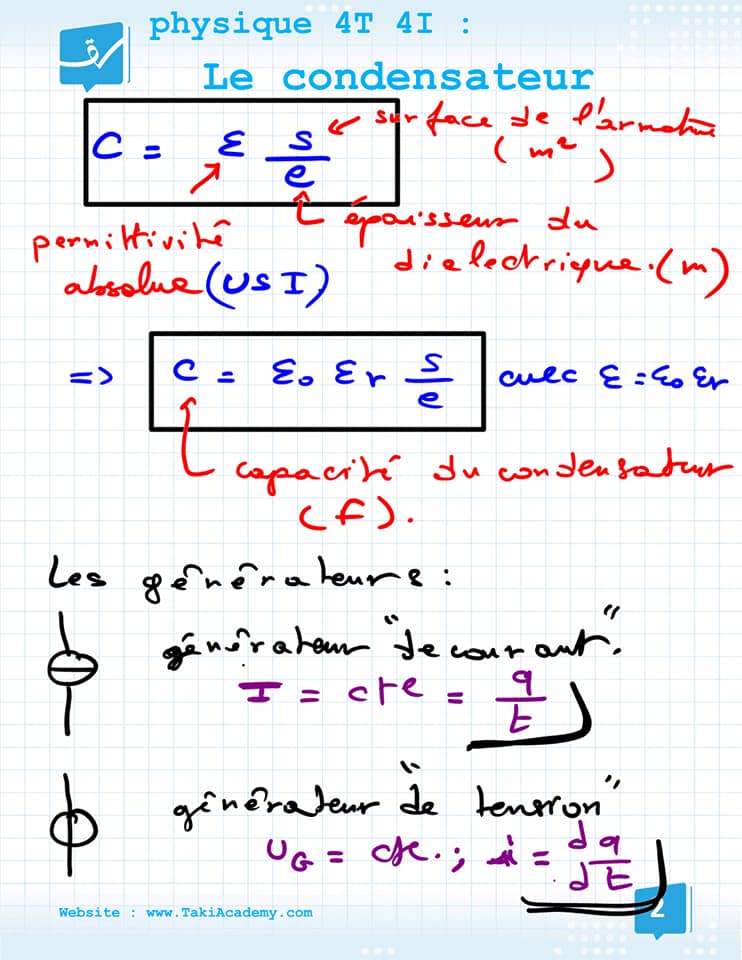 physique 4T 4I :
Le condensateur
C = ε s/e
surface de l'armature
(m²)
permittivité
absolue (USI)
épaisseur du
dielectrique. (m)
=> C = ε₀ εr s/e avec ε = ε₀ εr
capacité du condensateur
(F).
Les générateurs :
générateur "de courant".
I = cte = q/t
générateur "de tension"
UG = cte. ; i = dq/dt
Website : www.TakiAcademy.com
2